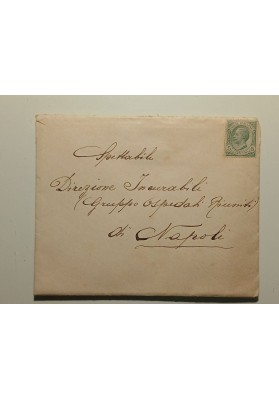 Spettabile
Direzione Incurabili
(Gruppo Ospedali Riuniti)
di Napoli